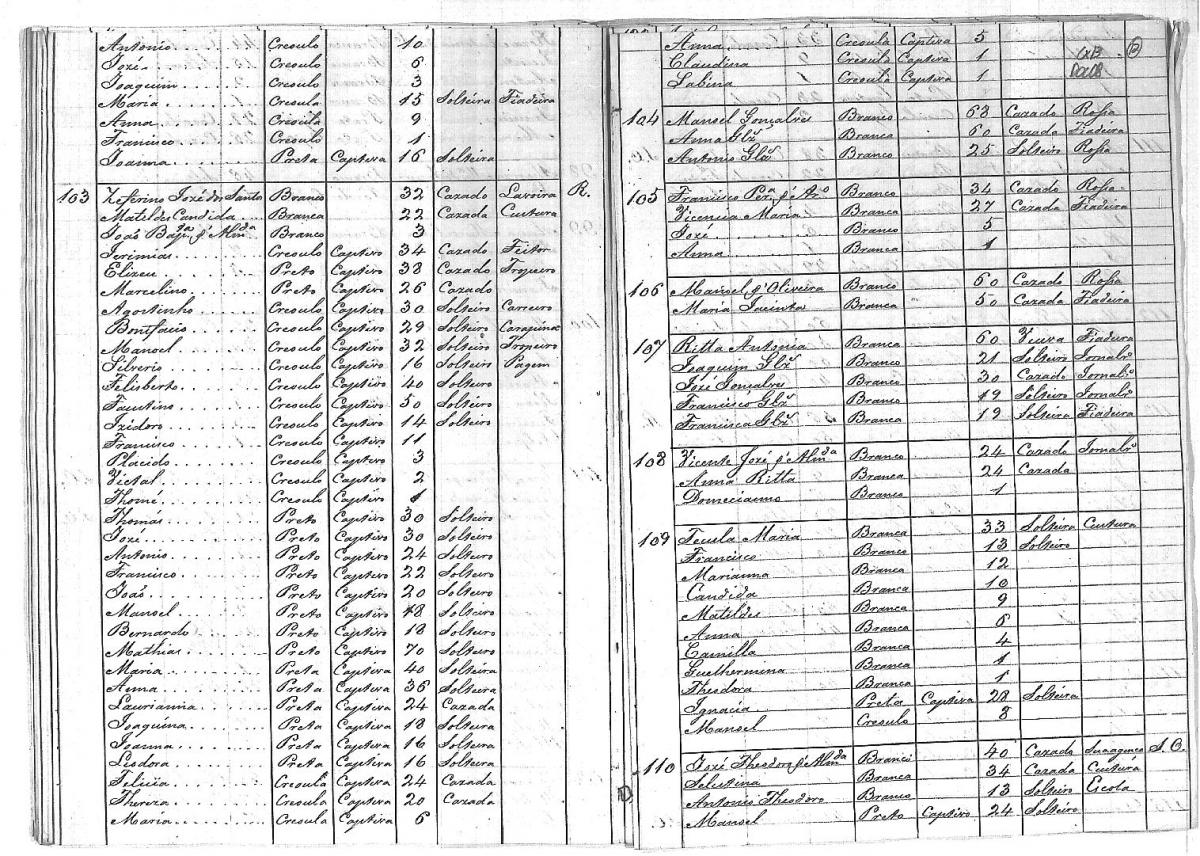 Antonio Cresulo 10
Jozé Cresulo 6
Joaquim Cresulo 3
Maria Cresula 15 Solteira Fiadeira
Anna Cresula 9
Francisco Cresulo 1
Joanna Preta Captiva 16 Solteira
103 Zeferino Jozé dos Santos Branco 32 Cazado Lavoira R.
Matildes Candida Branca 22 Cazada Custura
João Bapta d'Almda Branco 3
Jerimias Cresulo Captivo 34 Cazado Feitor
Elizeu Preto Captivo 38 Cazado Tropeiro
Marcelino Preto Captivo 26 Cazado
Agostinho Cresulo Captivo 30 Solteiro Carreiro
Bonifacio Cresulo Captivo 29 Solteiro Carapina
Manoel Cresulo Captivo 32 Solteiro Tropeiro
Silverio Cresulo Captivo 16 Solteiro Pagem
Felisberto Cresulo Captivo 40 Solteiro
Faustino Cresulo Captivo 50 Solteiro
Izidoro Cresulo Captivo 14 Solteiro
Francisco Cresulo Captivo 11
Placido Cresulo Captivo 3
Victal Cresulo Captivo 2
Thomé Cresulo Captivo 1
Thomás Preto Captivo 30 Solteiro
Jozé Preto Captivo 30 Solteiro
Antonio Preto Captivo 24 Solteiro
Francisco Preto Captivo 22 Solteiro
João Preto Captivo 20 Solteiro
Manoel Preto Captivo 18 Solteiro
Bernardo Preto Captivo 18 Solteiro
Mathias Preto Captivo 70 Solteiro
Maria Preta Captiva 40 Solteira
Anna Preta Captiva 36 Solteira
Laurianna Preta Captiva 24 Cazada
Joaquina Preta Captiva 18 Solteira
Joanna Preta Captiva 16 Solteira
Leodora Preta Captiva 16 Solteira
Felicia Cresula Captiva 24 Cazada
Thereza Cresula Captiva 20 Cazada
Maria Cresula Captiva 6
Anna Cresula Captiva 5
Claudina Cresula Captiva 1
Sabina Cresula Captiva 1
104 Manoel Gonçalves Branco 63 Cazado Rossa
Anna Glz Branca 60 Cazada Fiadeira
Antonio Glz Branco 25 Solteiro Rossa
105 Francisco Pera d'Aro Branco 34 Cazado Rossa
Vicencia Maria Branca 27 Cazada Fiadeira
Jozé Branco 5
Anna Branca 1
106 Manoel d'Oliveira Branco 60 Cazado Rossa
Maria Jacinta Branca 50 Cazada Fiadeira
107 Ritta Antonia Branca 60 Viuva Fiadeira
Joaquim Glz Branco 21 Solteiro Jornalro
Jozé Gonçalves Branco 30 Cazado Jornalro
Francisco Glz Branco 19 Solteiro Jornalro
Francisca Glz Branca 19 Solteira Fiadeira
108 Vicente Jozé d'Almda Branco 24 Cazado Jornalro
Anna Ritta Branca 24 Cazada
Domecianno Branco 1
109 Tecula Maria Branca 33 Solteira Custura
Francisco Branco 13 Solteiro
Marianna Branca 12
Candida Branca 10
Matildes Branca 9
Anna Branca 6
Camilla Branca 4
Guelhermina Branca 1
Theodora Branca 1
Ignacia Preta Captiva 28 Solteira
Manoel Cresulo 8
110 Jozé Theodoro d'Almda Branco 40 Cazado S. O.
Selustina Branca 34 Cazada Custura
Antonio Theodoro Branco 13 Solteiro Escola
Manoel Preto Captivo 24 Solteiro